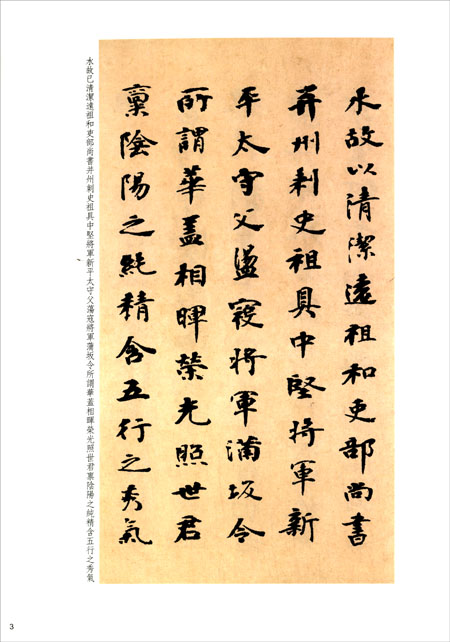 水故以清潔遠祖和吏部尚書
并州刺史祖具中堅將軍新
平太守父盪寇将軍蒲坂令
所謂華蓋相暉榮光照世君
稟陰陽之純精含五行之秀氣
水故已清潔遠祖和吏部尚書并州刺史祖具中堅將軍新平太守父蕩寇將軍蒲坂令所謂華蓋相暉榮光照世君稟陰陽之純精含五行之秀氣
3